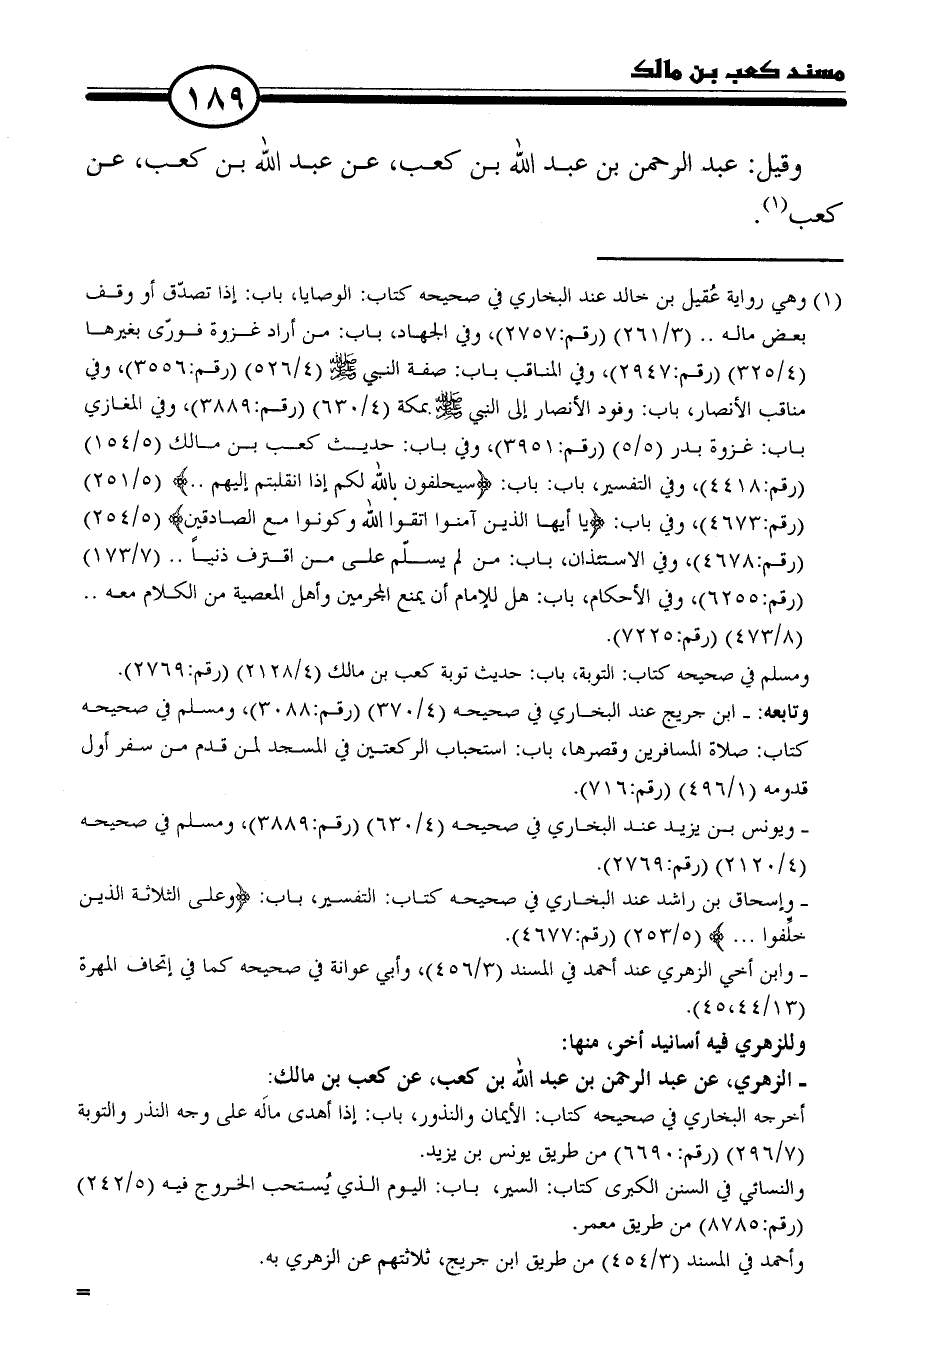 مسند كعب بن مالك
١٨٩
وقيل: عبد الرحمن بن عبد الله بن كعب، عن عبد الله بن كعب، عن
كعب(١).
(١) وهي رواية عُقيل بن خالد عند البخاري في صحيحه كتاب: الوصايا، باب: إذا تصدّق أو وقف
بعض ماله .. (٢٦١/٣) (رقم:٢٧٥٧)، وفي الجهاد، باب: من أراد غزوة فورّى بغيرها
(٣٢٥/٤) (رقم:٢٩٤٧)، وفي المناقب باب: صفة النبي ﷺ (٥٢٦/٤) (رقم:٣٥٥٦)، وفي
مناقب الأنصار، باب: وفود الأنصار إلى النبي ﷺ بمكة (٦٣٠/٤) (رقم:٣٨٨٩)، وفي المغازي
باب: غزوة بدر (٥/٥) (رقم:٣٩٥١)، وفي باب: حديث كعب بن مالك (١٥٤/٥)
(رقم:٤٤١٨)، وفي التفسير، باب: باب: ﴿سيحلفون بالله لكم إذا انقلبتم إليهم ..﴾ (٢٥١/٥)
(رقم:٤٦٧٣)، وفي باب: ﴿يا أيها الذين آمنوا اتقوا الله وكونوا مع الصادقين﴾ (٢٥٤/٥)
(رقم:٤٦٧٨)، وفي الاستئذان، باب: من لم يسلّم على من اقترف ذنباً .. (١٧٣/٧)
(رقم:٦٢٥٥)، وفي الأحكام، باب: هل للإمام أن يمنع المجرمين وأهل المعصية من الكلام معه ..
(٤٧٣/٨) (رقم:٧٢٢٥).
ومسلم في صحيحه كتاب: التوبة، باب: حديث توبة كعب بن مالك (٢١٢٨/٤) (رقم:٢٧٦٩).
وتابعه: ـ ابن جريج عند البخاري في صحيحه (٣٧٠/٤) (رقم:٣٠٨٨)، ومسلم في صحيحه
كتاب: صلاة المسافرين وقصرها، باب: استحباب الركعتين في المسجد لمن قدم من سفر أول
قدومه (٤٩٦/١) (رقم:٧١٦).
ـ ويونس بن يزيد عند البخاري في صحيحه (٦٣٠/٤) (رقم:٣٨٨٩)، ومسلم في صحيحه
(٢١٢٠/٤) (رقم:٢٧٦٩).
ـ وإسحاق بن راشد عند البخاري في صحيحه كتاب: التفسير، باب: ﴿وعلى الثلاثة الذين
خلّفوا ... ﴾ (٢٥٣/٥) (رقم:٤٦٧٧).
ـ وابن أخي الزهري عند أحمد في المسند (٤٥٦/٣)، وأبي عوانة في صحيحه كما في إتحاف المهرة
(٤٥،٤٤/١٣).
وللزهري فيه أسانيد أخر، منها:
ـ الزهري، عن عبد الرحمن بن عبد الله بن كعب، عن كعب بن مالك:
أخرجه البخاري في صحيحه كتاب: الأيمان والنذور، باب: إذا أهدى مالَه على وجه النذر والتوبة
(٢٩٦/٧) (رقم:٦٦٩٠) من طريق يونس بن يزيد.
والنسائي في السنن الكبرى كتاب: السير، باب: اليوم الذي يُستحب الخروج فيه (٢٤٢/٥)
(رقم:٨٧٨٥) من طريق معمر.
وأحمد في المسند (٤٥٤/٣) من طريق ابن جريج، ثلاثتهم عن الزهري به.
=